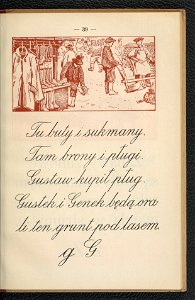 — 39 —
Tu buty i sukmany.
Tam brony i pługi.
Gustaw kupił pług.
Gustek i Genek będą ora
li ten grunt pod lasem.
g G